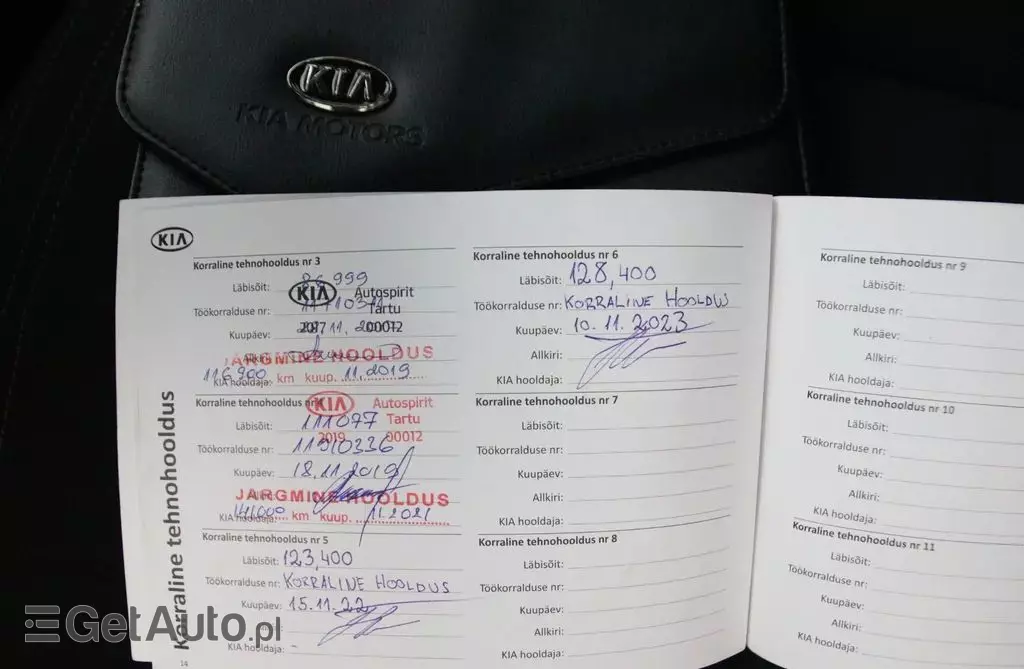 KIA
KIA MOTORS
KIA
Korraline tehnohooldus nr 3
Läbisõit: 86 999
KIA Autospirit
Töökorralduse nr:
Tartu
Kuupäev: 11. 00012
JÄRGMINE HOOLDUS
116900 km kuup. 11.2019
KIA hooldaja:
Korraline tehnohooldus nr
KIA Autospirit
Läbisõit: 111077 Tartu
2019 00012
Töökorralduse nr: 11910336
Kuupäev: 18.11.2019
JÄRGMINE HOOLDUS
141000 km kuup. 11.2021
KIA hooldaja:
Korraline tehnohooldus nr 5
Läbisõit: 123,400
Töökorralduse nr: KORRALINE HOOLDUS
Kuupäev: 15.11.22
KIA hooldaja: -
14
Korraline tehnohooldus
Korraline tehnohooldus nr 6
Läbisõit: 128,400
Töökorralduse nr: KORRALINE HOOLDUS
Kuupäev: 10.11.2023
Allkiri:
KIA hooldaja:
Korraline tehnohooldus nr 7
Läbisõit:
Töökorralduse nr:
Kuupäev:
Allkiri:
KIA hooldaja:
Korraline tehnohooldus nr 8
Läbisõit:
Töökorralduse nr:
Kuupäev:
Allkiri:
KIA hooldaja:
Korraline tehnohooldus nr 9
Läbisõit:
Töökorralduse nr:
Kuupäev:
Allkiri:
KIA hooldaja:
Korraline tehnohooldus nr 10
Läbisõit:
Töökorralduse nr:
Kuupäev:
Allkiri:
KIA hooldaja:
Korraline tehnohooldus nr 11
Läbisõit:
Töökorralduse nr:
Kuupäev:
Allkiri:
KIA hooldaja:
GetAuto.pl